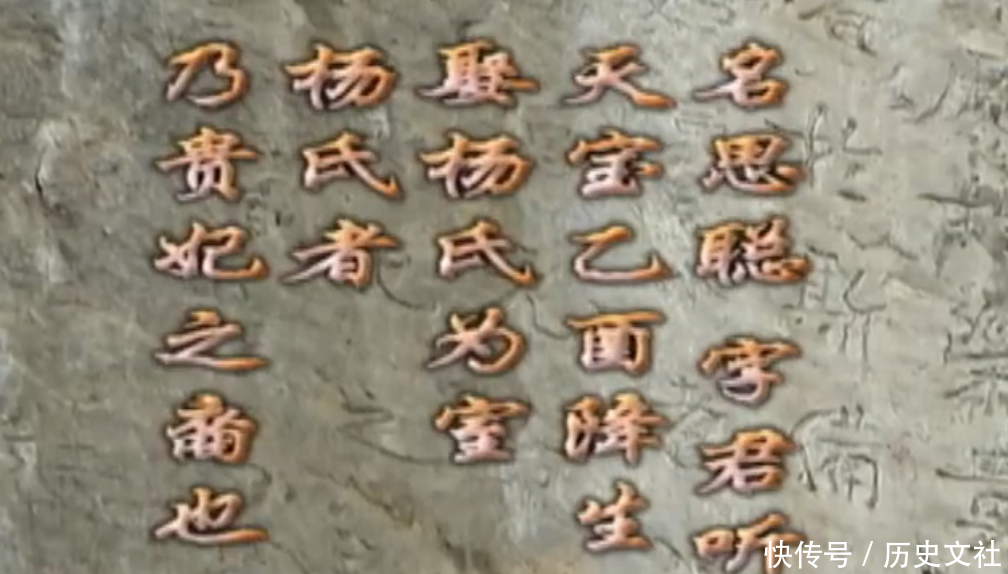 名思聪 字君听
天宝乙酉降生
娶杨氏为室
杨氏者
乃贵妃之裔也
快传号 / 历史文社